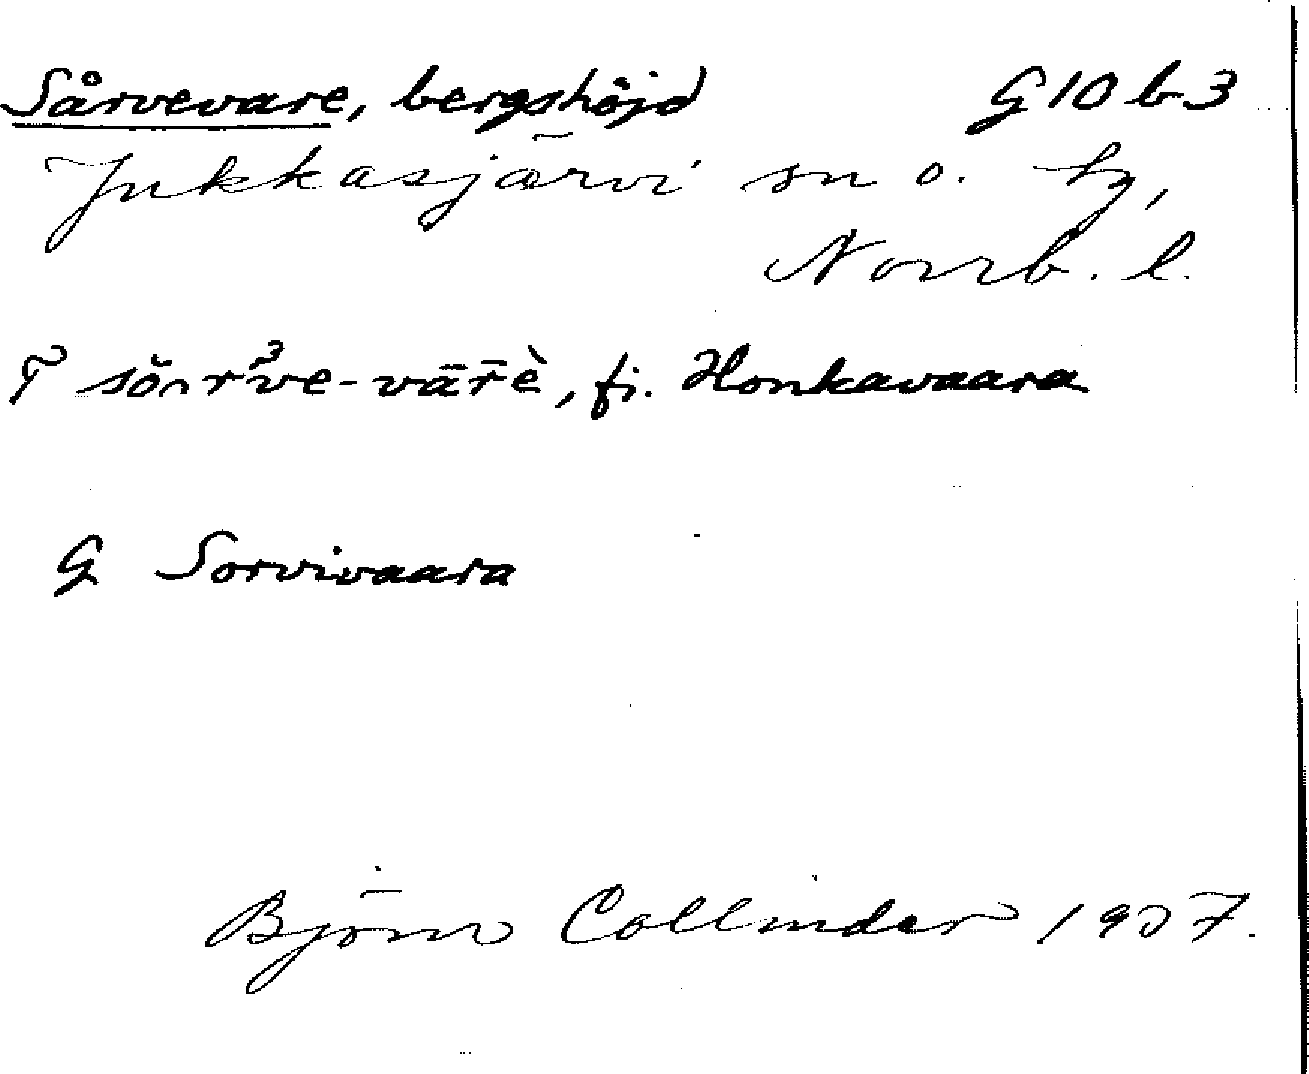 Sårvevare, bergshöjd G10b3
Jukkasjärvi sn o. tg,
Norrb. l.
fi. Honkavaara
G Sorvivaara
Björn Collinder 1957.